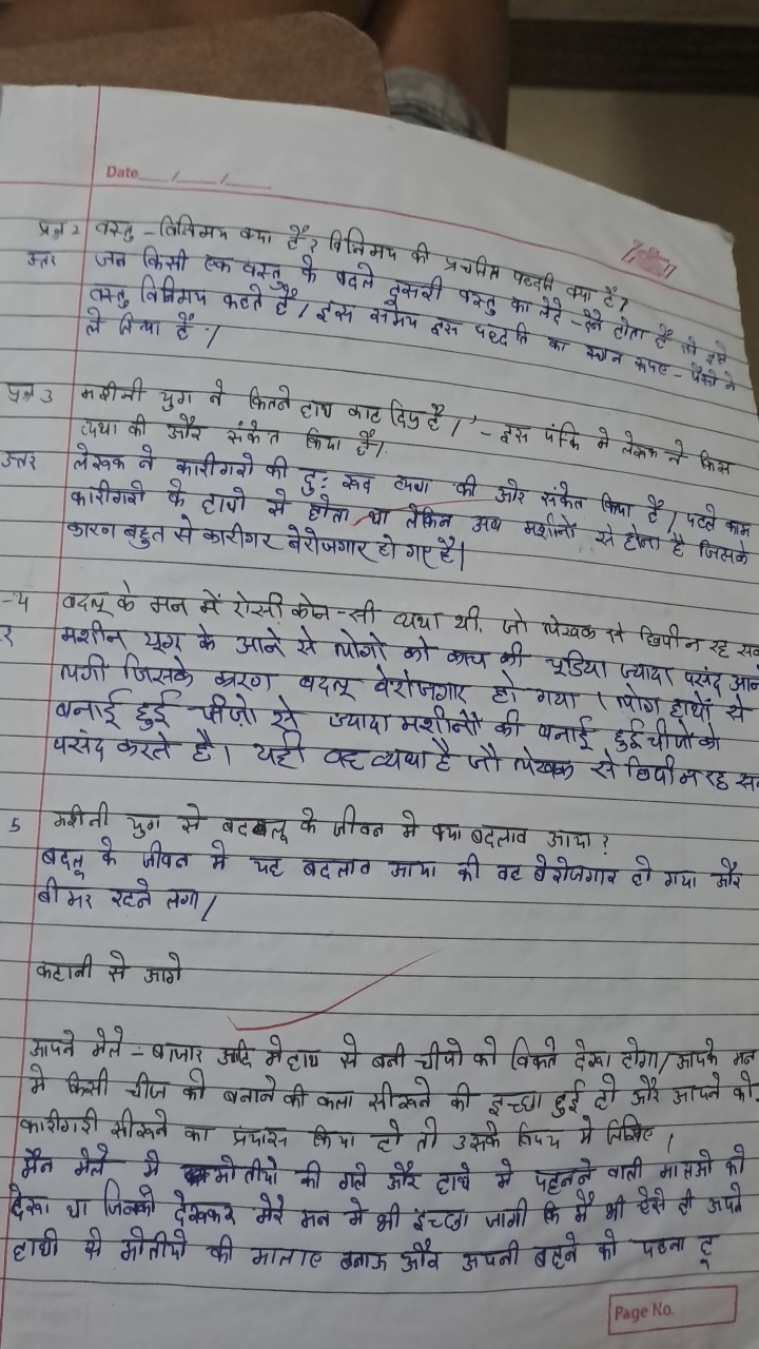 Date
प्रश्न 2 वस्तु - विनिमय क्या है? विनिमय की प्रचलित पद्दति क्या है?
उत्तर जब किसी एक वस्तु के बदले दुसरी वस्तु का लेदे - देने होता है तो इसे
वस्तु विनिमय कहते है। इस समय इस पद्दति का स्थान रूपए - पैसो ने
ले लिया है।
प्रश्न 3 मशीनी युग ने कितने हाथ काट दिए है।' - इस पंक्ति मे लेखक ने किस
व्यथा की और संकेत किया है।
उत्तर लेखक ने कारीगरो की दुः खद व्यथा की ओर संकेत किया है। पहले काम
कारीगरो के हाथो से होता था लेकिन अब मशीनों से होता है जिसके
कारण बहुत से कारीगर बेरोजगार हो गए है।
बदलू के मन में ऐसी कोन - सी व्यथा थी, जो लेखक से छिपी न रह सकी
मशीन युग के आने से लोगो को काच की चूडिया ज्यादा पसंद आने
लगी जिसके कारण बदलू बेरोजगार हो गया। लोग हाथों से
बनाई हुई चीज़ो से ज्यादा मशीनों की बनाई हुई चीजो को
पसंद करते है। यही वह व्यथा है जो लेखक से छिपी न रह सकी
5 मशीनी युग से बदलू के जीवन मे क्या बदलाव आया?
बदलू के जीवन मे यह बदलाव आया की वह बेरोजगार हो गया और
बीमर रहने लगा।
कहानी से आगे
आपने मेले - बाजार आदि मे हाथ से बनी चीजो को बिकते देखा होगा। आपके मन
मे किसी चीज को बनाने की कला सीखने की इच्छा हुई हो और आपने को
कारीगरी सीखने का प्रयास किया हो तो उसके विषय मे लिखिए।
मैन मेले मे मोतीयो की गले और हाथे मे पहनने वाली मालाओ को
देखा था जिनको देखकर मेरे मन मे भी इच्छा जागी कि मै भी ऐसे ही अपने
हाथो से मोतीयो की मालाए बनाऊ और अपनी बहने को पहना दू
Page No.